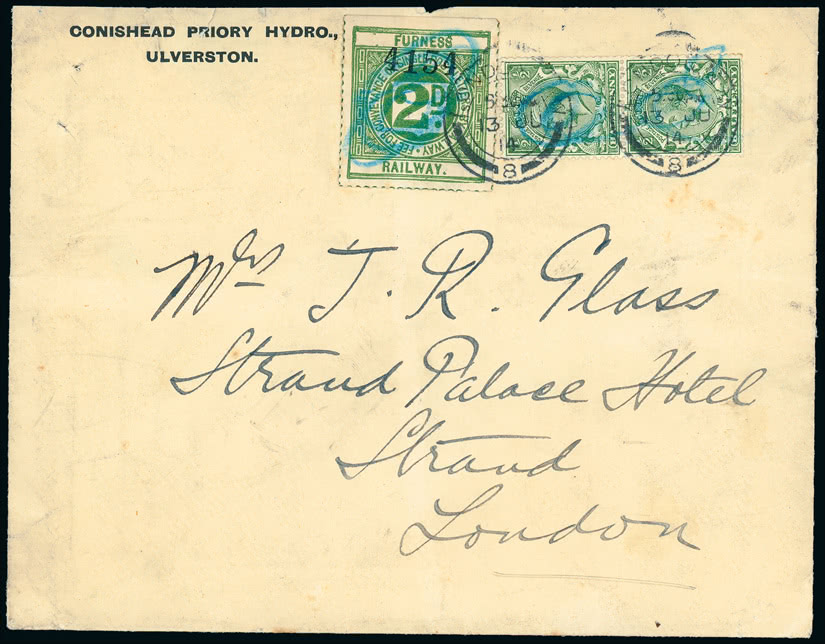 CONISHEAD PRIORY HYDRO.,
ULVERSTON.
FURNESS
4154
2D.
RAILWAY.
8
14
8
Mrs J. R. Glass
Strand Palace Hotel
Strand
London